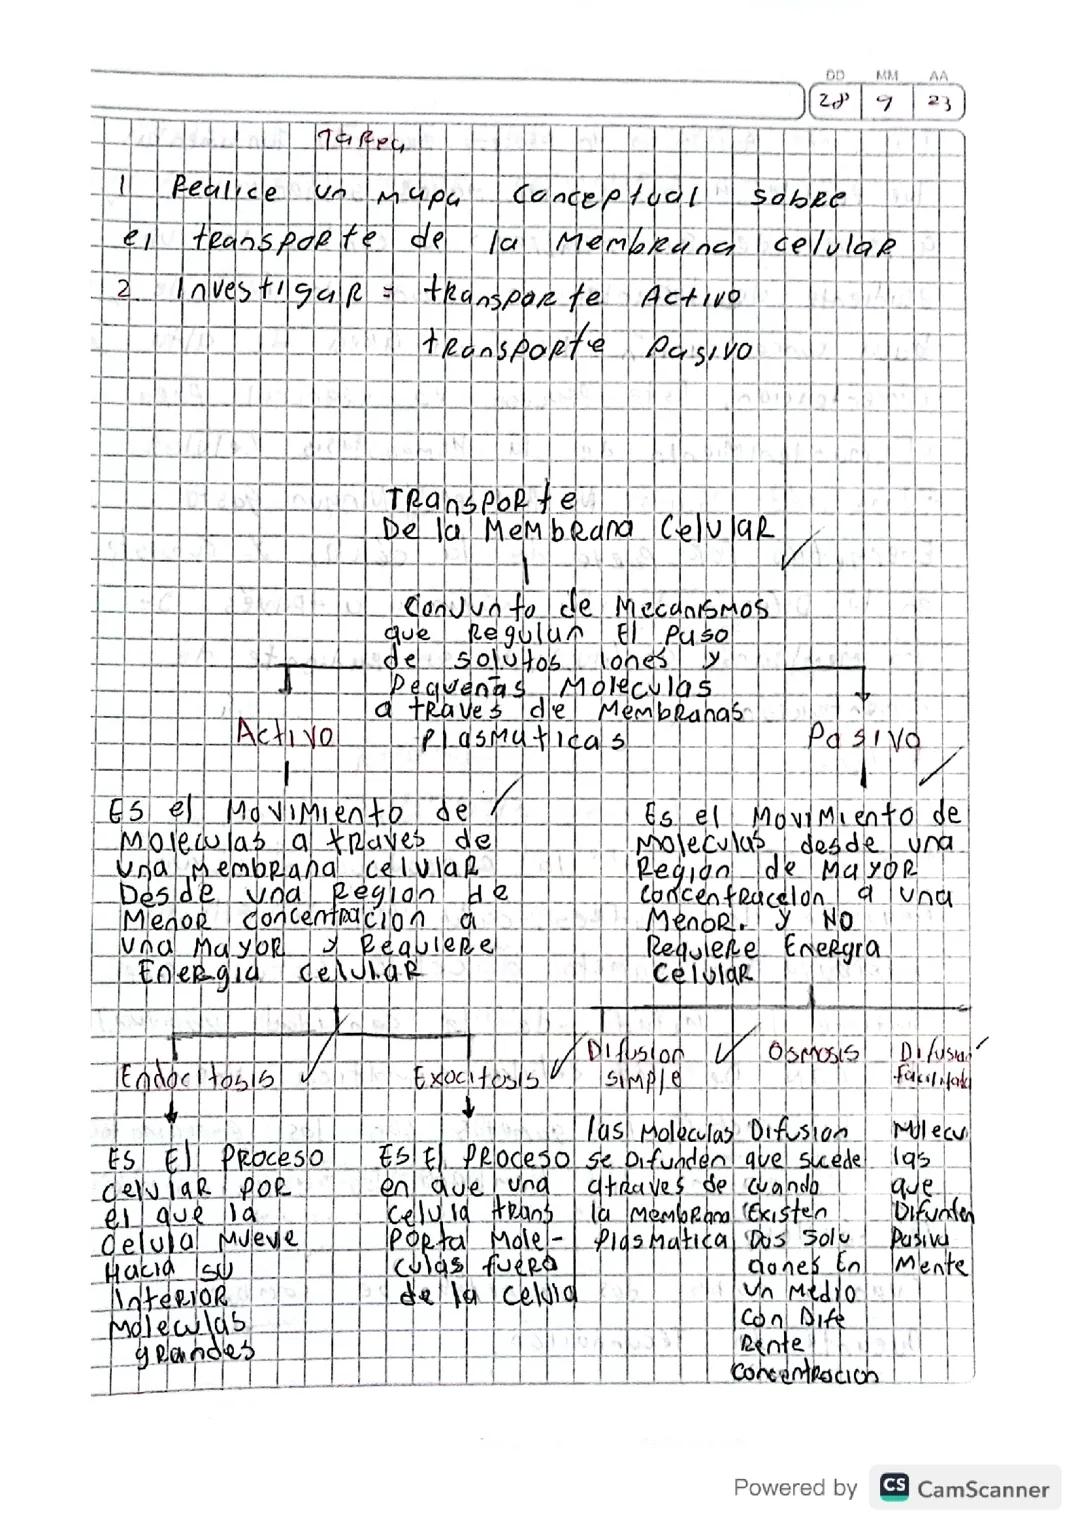 DD MM AA
28 9 23
Tarea
1 Realice un mapa conceptual sobre
el transporte de la Membrana celular
2 Investigar = transporte Activo
transporte Pasivo
Transporte
De la Membrana Celular
Conjunto de Mecanismos
que Regulan El paso
de solutos iones y
Pequeñas Moleculas
a traves de Membranas
Plasmaticas
Activo
Es el Movimiento de
Moleculas a traves de
una Membrana celular
Desde una Region de
Menor concentracion a
una Mayor y Requiere
Energia celular
Endocitosis
Es El Proceso
celular por
el que la
celula Mueve
Hacia su
Interior
Moleculas
grandes
Exocitosis
Es El Proceso
en que una
celula trans
porta Mole-
culas fuera
de la celula
Pasivo
Es el Movimiento de
Moleculas desde una
Region de Mayor
concentraceion a una
Menor. y NO
Requiere Energia
celular
Difusion
simple
las Moleculas
se Difunden
atraves de
la Membrana
Plasmatica
Osmosis
Difusion
que sucede
cuando
Existen
Dos Solu
ciones En
un Medio
Con Dife
Rente
concentracion
Difusion
facilitada
Molecu
las
que
Difunden
Pasiva
Mente
Powered by CS CamScanner